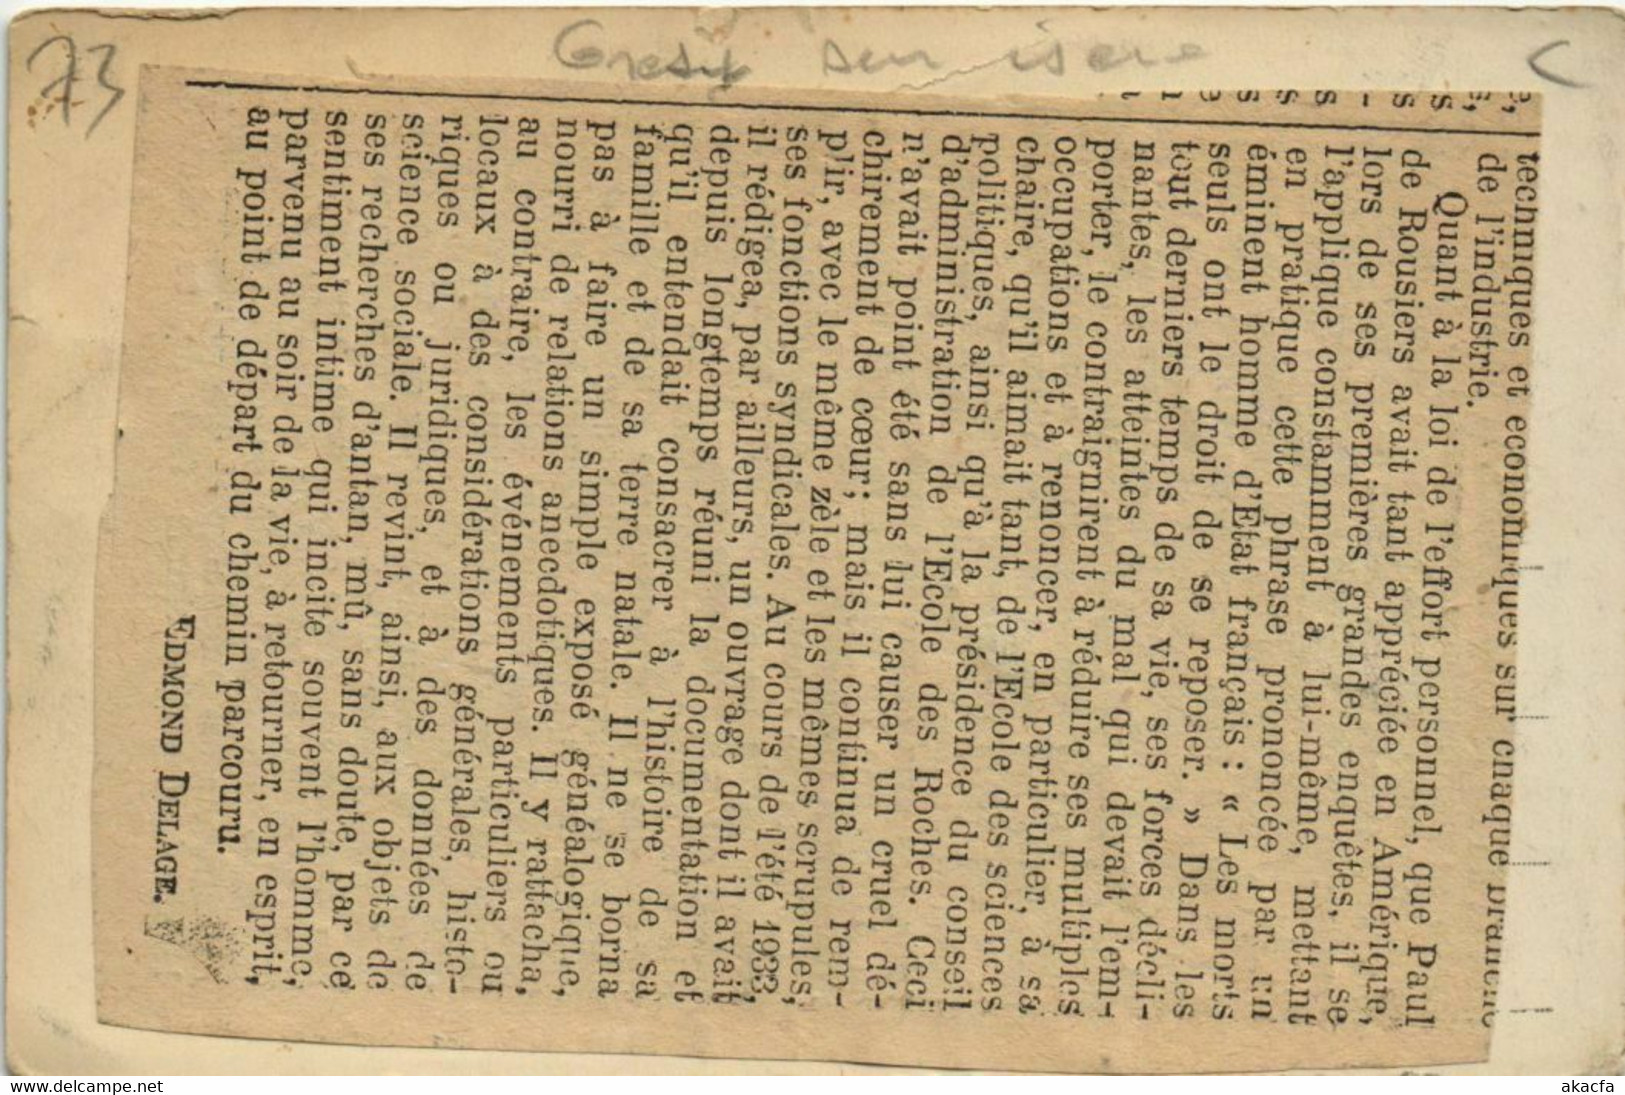 73
Gresy sur isere
techniques et economiques sur chaque branche
de l'industrie.
Quant à la loi de l'effort personnel, que Paul
de Rousiers avait tant appréciée en Amérique,
lors de ses premières grandes enquêtes, il se
l'applique constamment à lui-même, mettant
en pratique cette phrase prononcée par un
éminent homme d'Etat français : « Les morts
seuls ont le droit de se reposer. » Dans les
tout derniers temps de sa vie, ses forces décli-
nantes, les atteintes du mal qui devait l'em-
porter, le contraignirent à réduire ses multiples
occupations et à renoncer, en particulier, à sa
chaire, qu'il aimait tant, de l'Ecole des sciences
politiques, ainsi qu'à la présidence du conseil
d'administration de l'Ecole des Roches. Ceci
n'avait point été sans lui causer un cruel dé-
chirement de cœur; mais il continua de rem-
plir, avec le même zèle et les mêmes scrupules,
ses fonctions syndicales. Au cours de l'été 1933,
il rédigea, par ailleurs, un ouvrage dont il avait
depuis longtemps réuni la documentation et
qu'il entendait consacrer à l'histoire de sa
famille et de sa terre natale. Il ne se borna
pas à faire un simple exposé généalogique,
nourri de relations anecdotiques. Il y rattacha,
au contraire, les événements particuliers ou
locaux à des considérations générales, histo-
riques ou juridiques, et à des données de
science sociale. Il revint, ainsi, aux objets de
ses recherches d'antan, mû, sans doute, par ce
sentiment intime qui incite souvent l'homme,
parvenu au soir de la vie, à retourner, en esprit,
au point de départ du chemin parcouru.
EDMOND DELAGE.
www.delcampe.net
akacfa